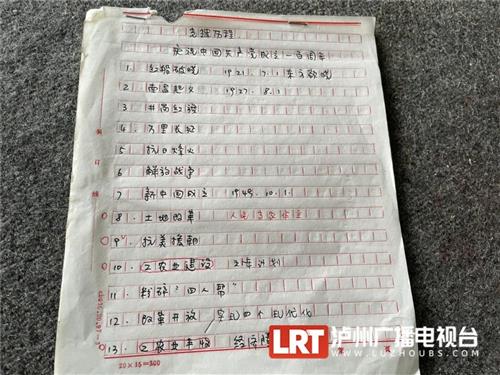 光辉历程
庆祝中国共产党成立一百周年
1. 红船破晓 1921.7.1 东方欲晓
2. 南昌起义 1927.8.1
3. 井冈红旗
4. 万里长征
5. 抗日烽火
6 解放战争
7 新中国成立 1949.10.1
8. 土地改革 人民当家作主
9. 抗美援朝
10. 工农业建设 五年计划
11. 粉碎"四人帮"
12. 改革开放 实现四个现代化
13. 工农业丰收 经济
20×15=300
LRT 泸州广播电视台
WWW.LUZHOUBS.COM